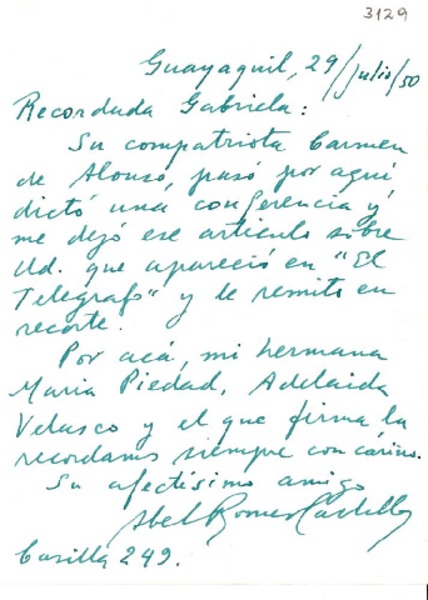 3129
Guayaquil, 29/Julio/50
Recordada Gabriela:
Su compatriota Carmen
de Alonso, pasó por aquí
dictó una conferencia y
me dejó ese articulo sobre
Ud. que apareció en "El
Telégrafo" y le remito en
recorte.
Por acá, mi hermana
Maria Piedad, Adelaida
Velasco y el que firma la
recordamos siempre con cariño.
Su afectísimo amigo
Abel Romeo Castillo
Casilla 249.